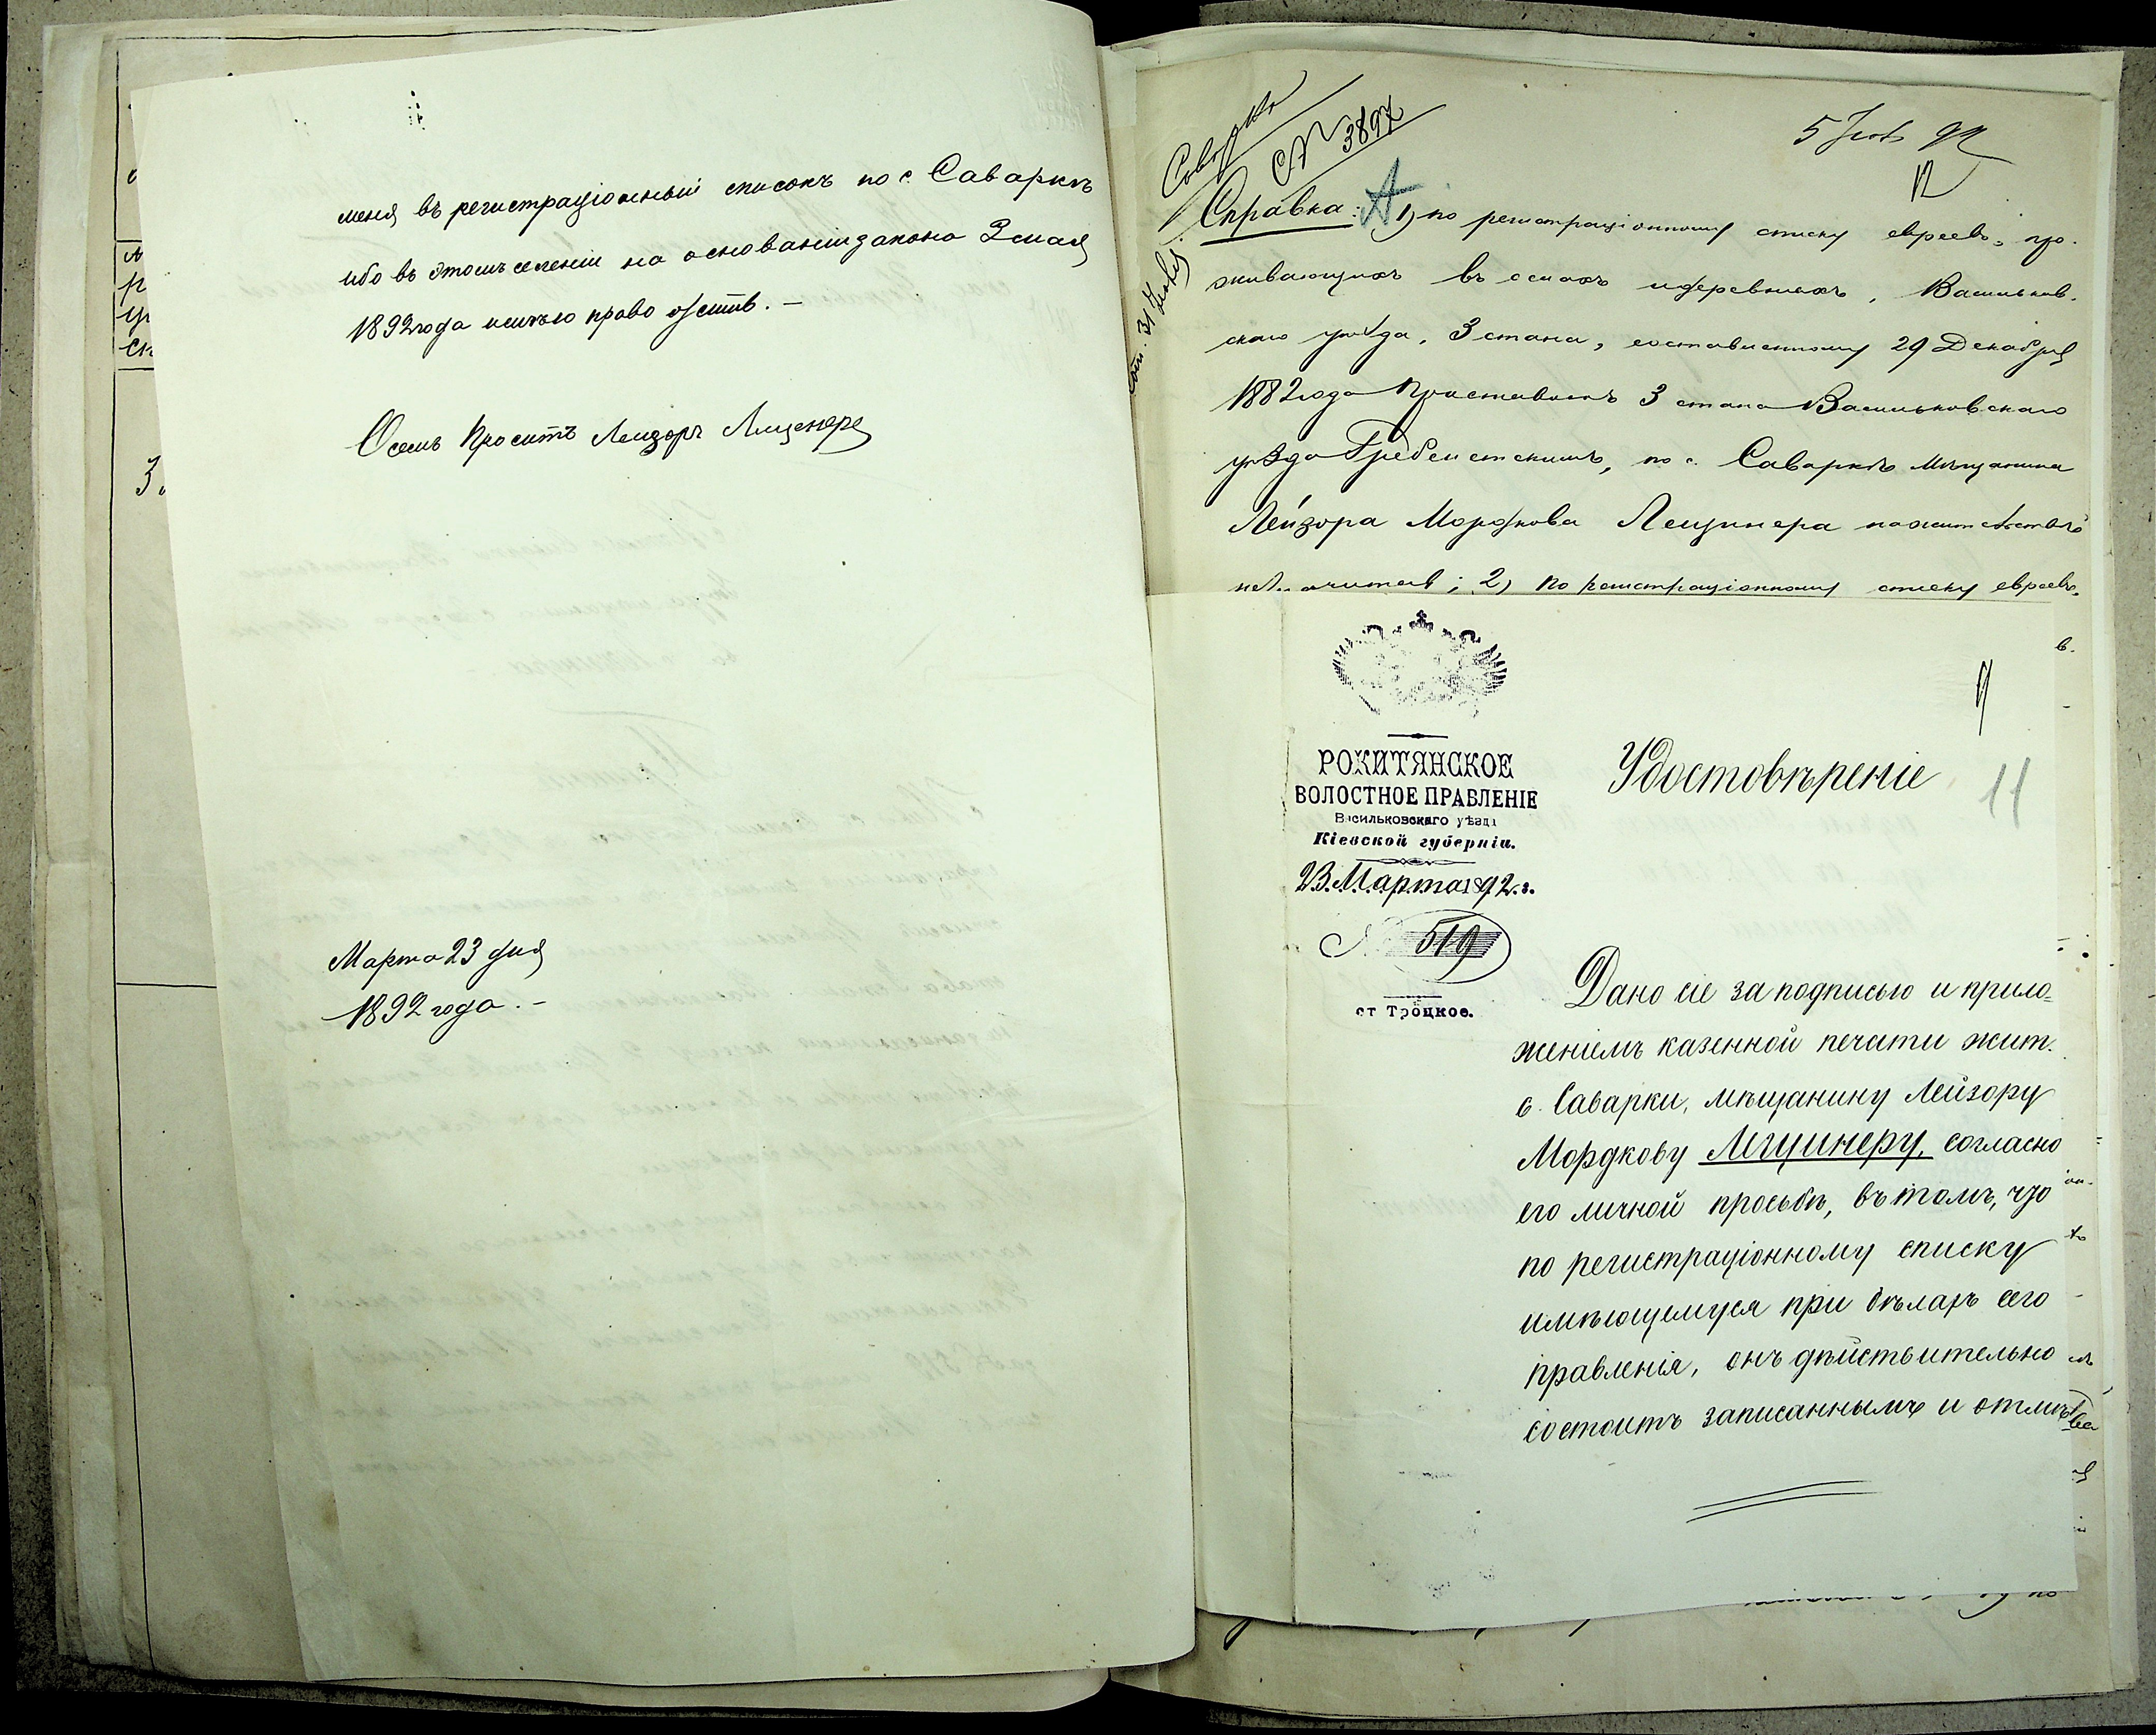 меня въ регистраціонный списокъ по с. Саваркѣ
ибо въ этомъ селеніи на основаніи закона 3 мая
1892 года имѣю право
Осемъ Проситъ Лейзоръ
Марта 23 дня
1892 года. -
№ 3897
12
Справка: 1) по регистраціонному списку евреевъ, про-
живающихъ въ селахъ и деревняхъ, Васильков-
скаго уѣзда, 3 стана, составленному 29 Декабря
1882 года Приставомъ 3 стана Васильковскаго
уѣзда по с. Саваркѣ мѣщанина
Лейзора Мордкова Лещинера
2) по регистраціонному списку евреевъ,
РОКИТЯНСКОЕ
ВОЛОСТНОЕ ПРАВЛЕНІЕ
Васильковскаго уѣзда
Кіевской губерніи.
23 Марта 1892 г.
№ 519
ст Троцкое.
Удостовѣреніе
11
Дано сіе за подписью и прило-
женіемъ казенной печати жит.
с. Саварки, мѣщанину Лейзору
Мордкову Лещинеру, согласно
его личной просьбѣ, въ томъ, что
по регистраціонному списку
имѣющемуся при дѣлахъ сего
правленія, онъ дѣйствительно
состоитъ записаннымъ и отмѣ